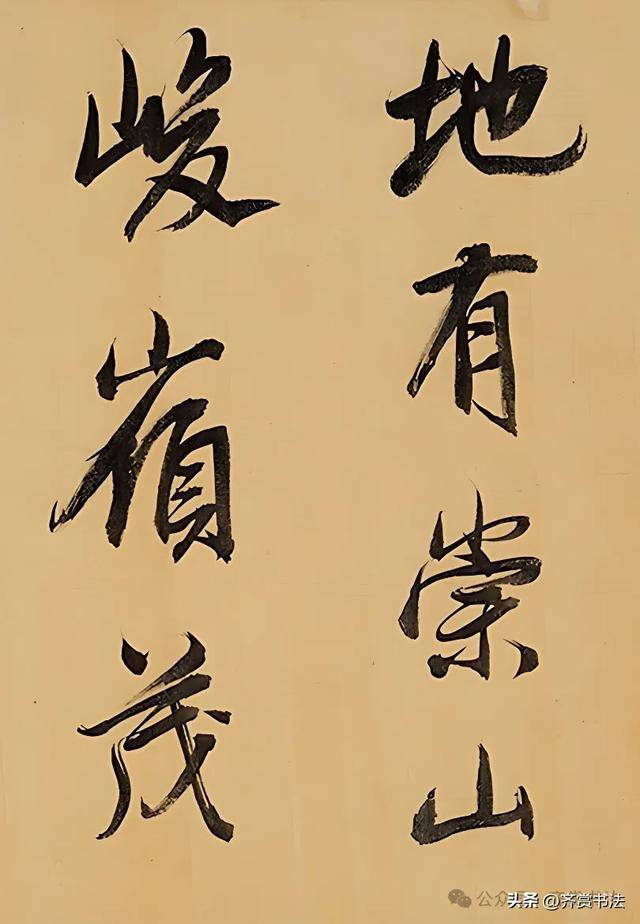 地有崇山
峻嶺茂
公众号 · 齐赏书法
头条 @齐赏书法